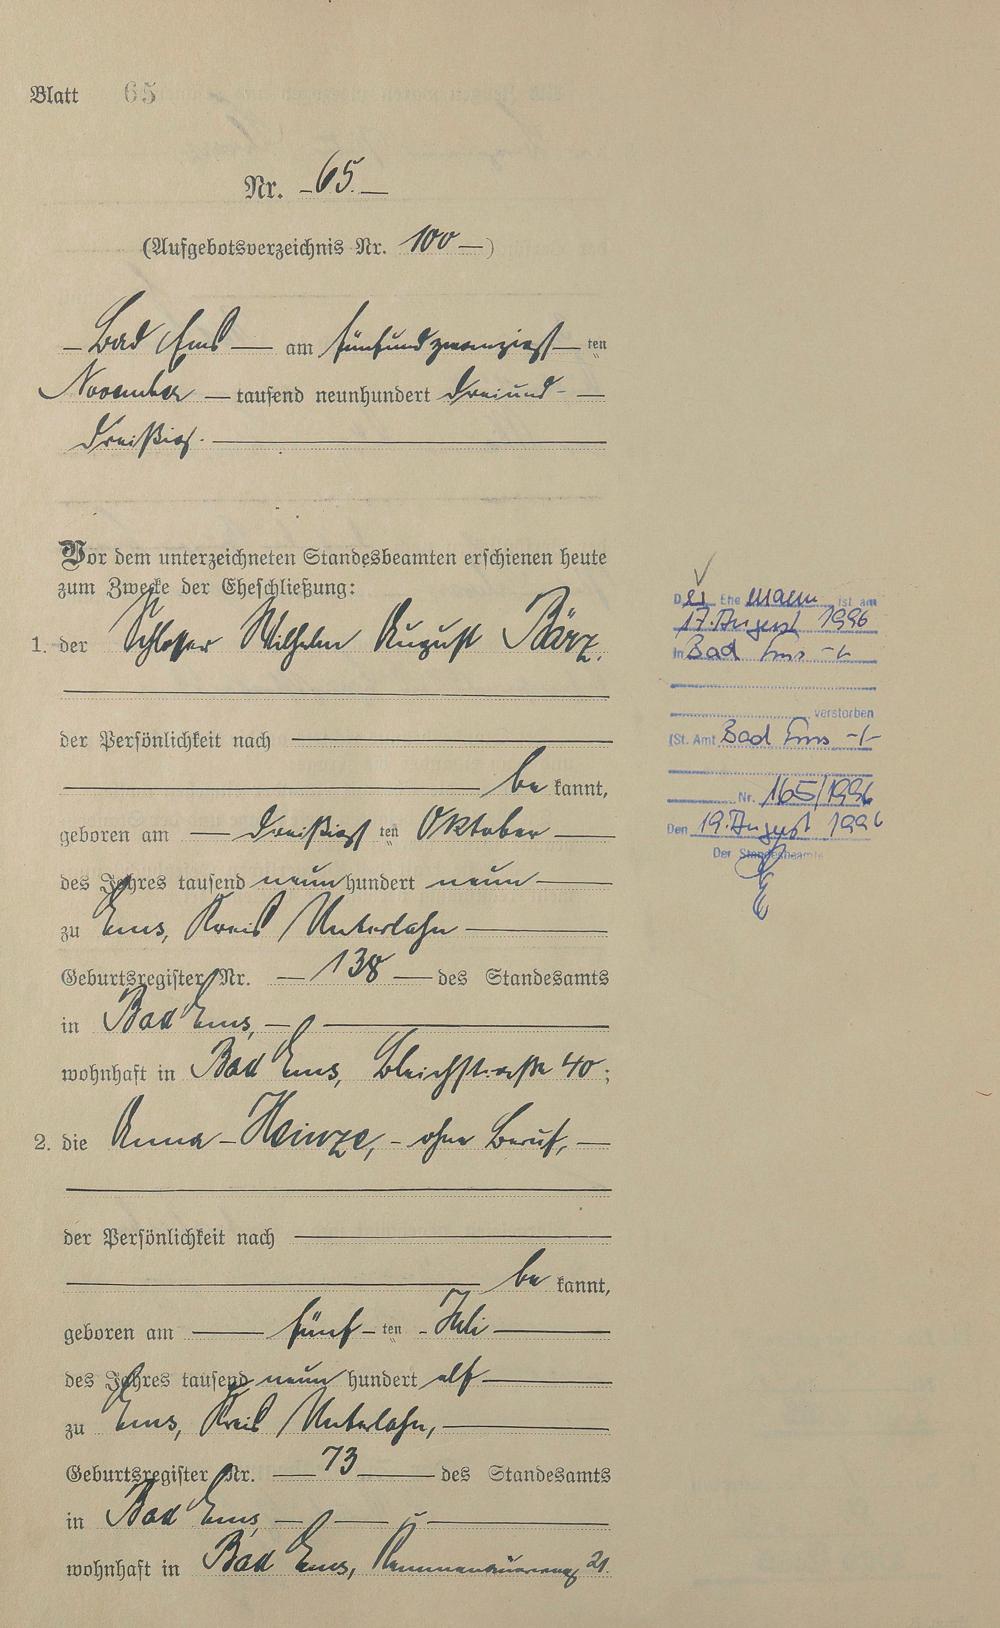 Blatt 65
Nr. 65.
(Aufgebotsverzeichnis Nr. 100 )
Bad Ems am fünfundzwanzigst ten
November tausend neunhundert dreiund-
dreißig.
Vor dem unterzeichneten Standesbeamten erschienen heute
zum Zwecke der Eheschließung:
1. der Schlosser Wilhelm August Bärz,
der Persönlichkeit nach
be kannt,
geboren am dreißigst ten Oktober
des Jahres tausend neun hundert neun
zu Ems, Kreis Unterlahn
Geburtsregister Nr. 138 des Standesamts
in Bad Ems,
wohnhaft in Bad Ems, Bleichstraße 40;
2. die Anna Heinze, ohne Beruf,
der Persönlichkeit nach
be kannt,
geboren am fünf ten Juli
des Jahres tausend neun hundert elf
zu Ems, Kreis Unterlahn,
Geburtsregister Nr. 73 des Standesamts
in Bad Ems
wohnhaft in Bad Ems, 21.
Der Ehemann ist am
17. August 1996
in Bad Ems
verstorben
(St. Amt Bad Ems
Nr. 165/1996
Den 19. August 1996
Der Standesbeamte